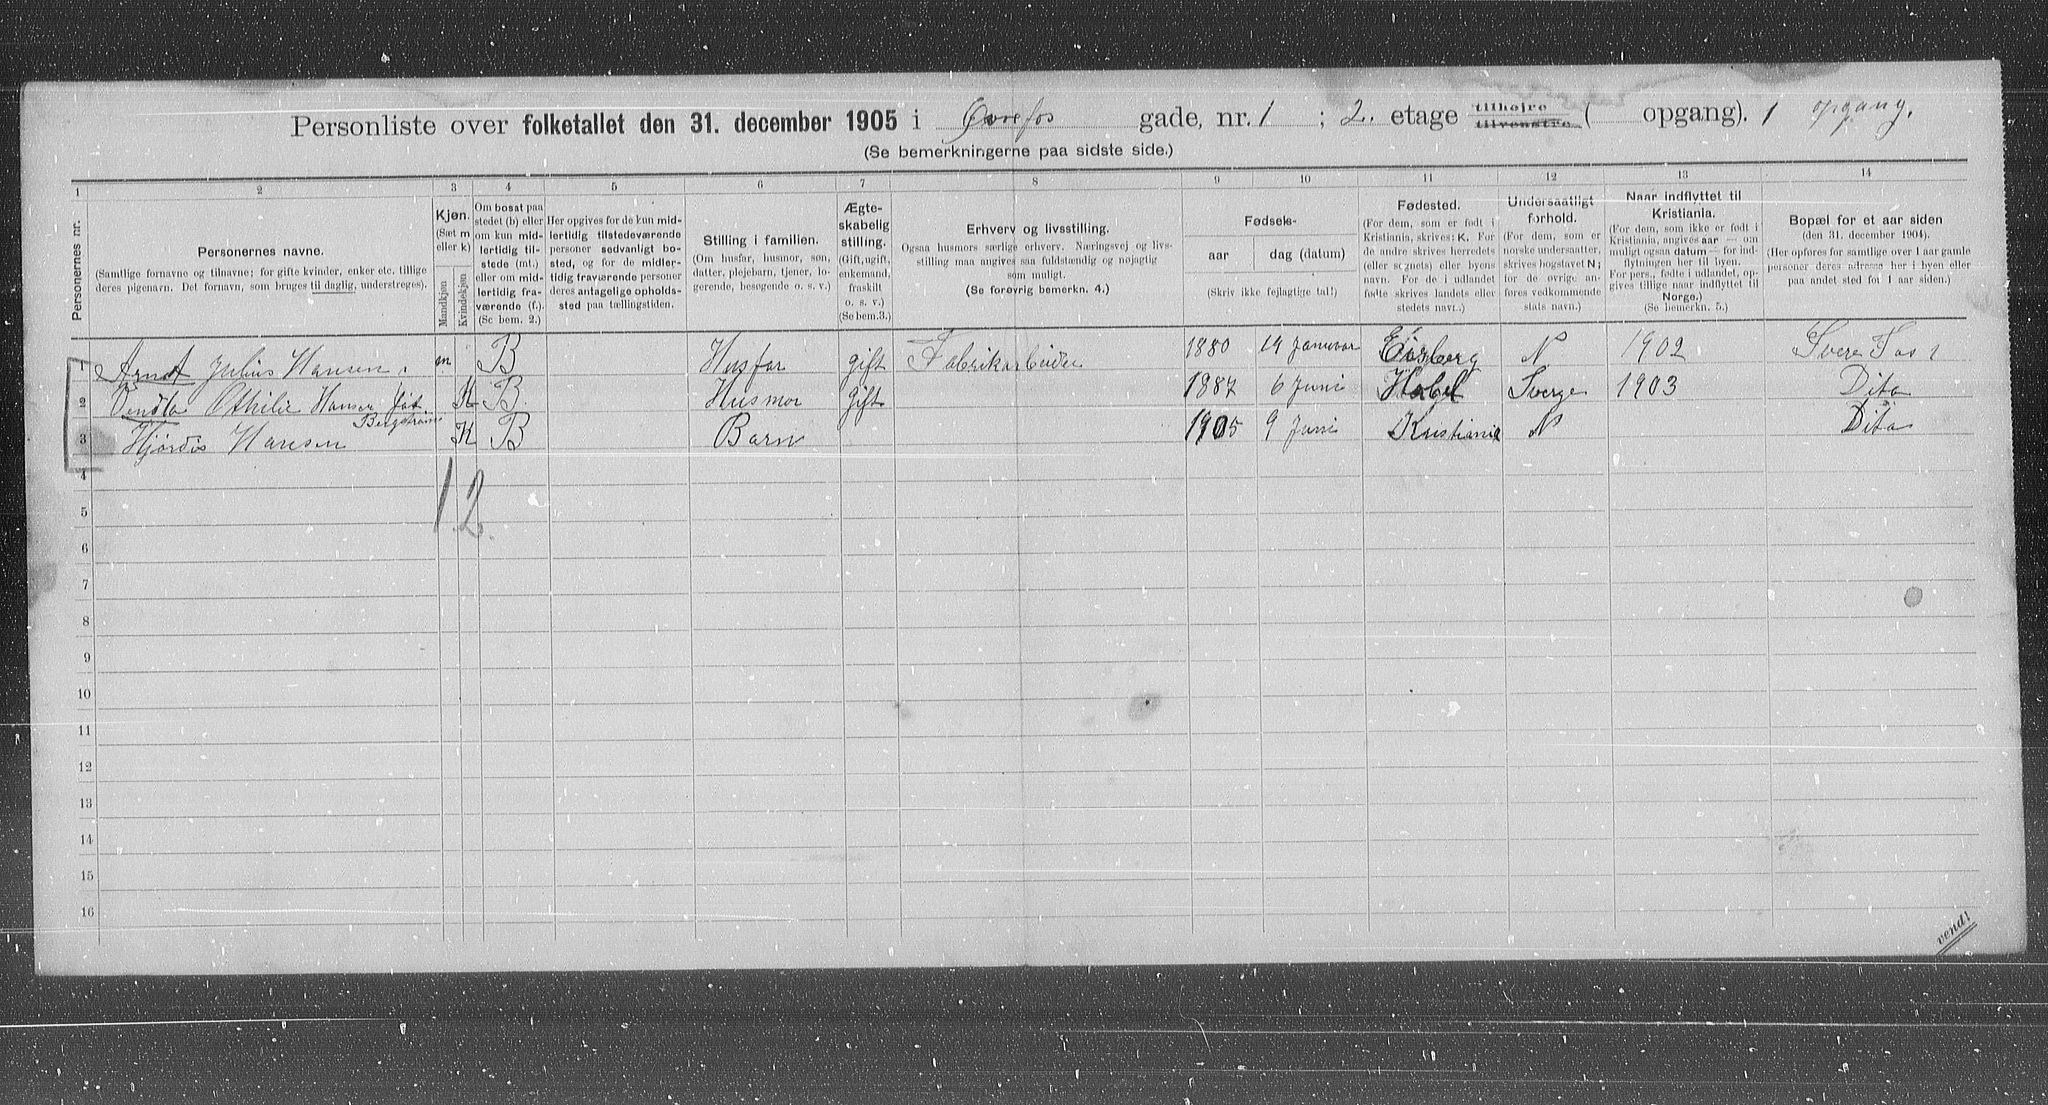 Personliste over folketallet den 31. december 1905 i Øvrefos gade, nr. 1 ; 2. etage tilhøjre tilvenstre ( opgang). 1 opgang.
(Se bemerkningerne paa sidste side.)
1 2 3 4 5 6 7 8 9 10 11 12 13 14
Personernes nr.
Personernes navne.
(Samtlige fornavne og tilnavne; for gifte kvinder, enker etc. tillige
deres pigenavn. Det fornavn, som bruges til daglig, understreges).
Kjøn.
(Sæt m
eller k)
Mandkjøn
Kvindekjøn
Om bosat paa
stedet (b) eller
om kun mid-
lertidig til-
stede (mt.)
eller om mid-
lertidig fra-
værende (f.).
(Se bem. 2.)
Her opgives for de kun mid-
lertidig tilstedeværende
personer sedvanligt bo-
sted, og for de midler-
tidig fraværende personer
deres antagelige opholds-
sted paa tællingstiden.
Stilling i familien.
(Om husfar, husmor, søn,
datter, plejebarn, tjener, lo-
gerende, besøgende o. s. v.)
Ægte-
skabelig
stilling.
(Gift, ugift,
enkemand,
fraskilt
o. s. v.)
(Se bem. 3.)
Erhverv og livsstilling.
Ogsaa husmors særlige erhverv. Næringsvej og livs-
stilling maa angives saa fuldstændig og nøjagtig
som muligt.
(Se forøvrig bemerkn. 4.)
Fødsels-
aar dag (datum)
(Skriv ikke fejlagtige tal!)
Fødested.
(For dem, som er født i
Kristiania, skrives: K. For
de andre skrives herredets
(eller sognets) eller byens
navn. For de i udlandet
fødte skrives landets eller
stedets navn.)
Undersaatligt
forhold.
(For dem, som er
norske undersaatter,
skrives bogstavet N;
for de øvrige an-
føres vedkommende
stats navn.)
Naar indflyttet til
Kristiania.
(For dem, som ikke er født i
Kristiania, angives aar — om
muligt ogsaa datum — for ind-
flytningen her til byen.
For pers., fødte i udlandet, op-
gives tillige naar indflyttet til
Norge.)
(Se bemerkn. 5.)
Bopæl for et aar siden
(den 31. december 1904).
(Her opføres for samtlige over 1 aar gamle
personer deres adresse her i byen eller
paa andet sted for 1 aar siden.)
1 Arndt Julius Hansen. m B Husfar gift Fabrikarbeider 1880 19 Januar Eidsberg N 1902 Øvre Fos 1
2 Vendla Othilie Hansen føt Bergstrøm K B. Husmor Gift 1887 6 Juni Habøl Sverge 1903 Dito
3 Hjørdis Hansen K B Barn 1905 9 Juni Kristiania N Dito
4
1 2.
5
6
7
8
9
10
11
12
13
14
15
16
vend!